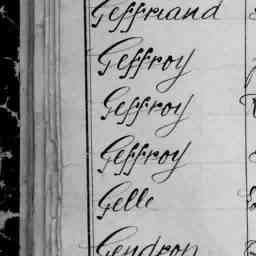 Geffriand
Geffroy
Geffroy
Geffroy
Gelle
Gendron